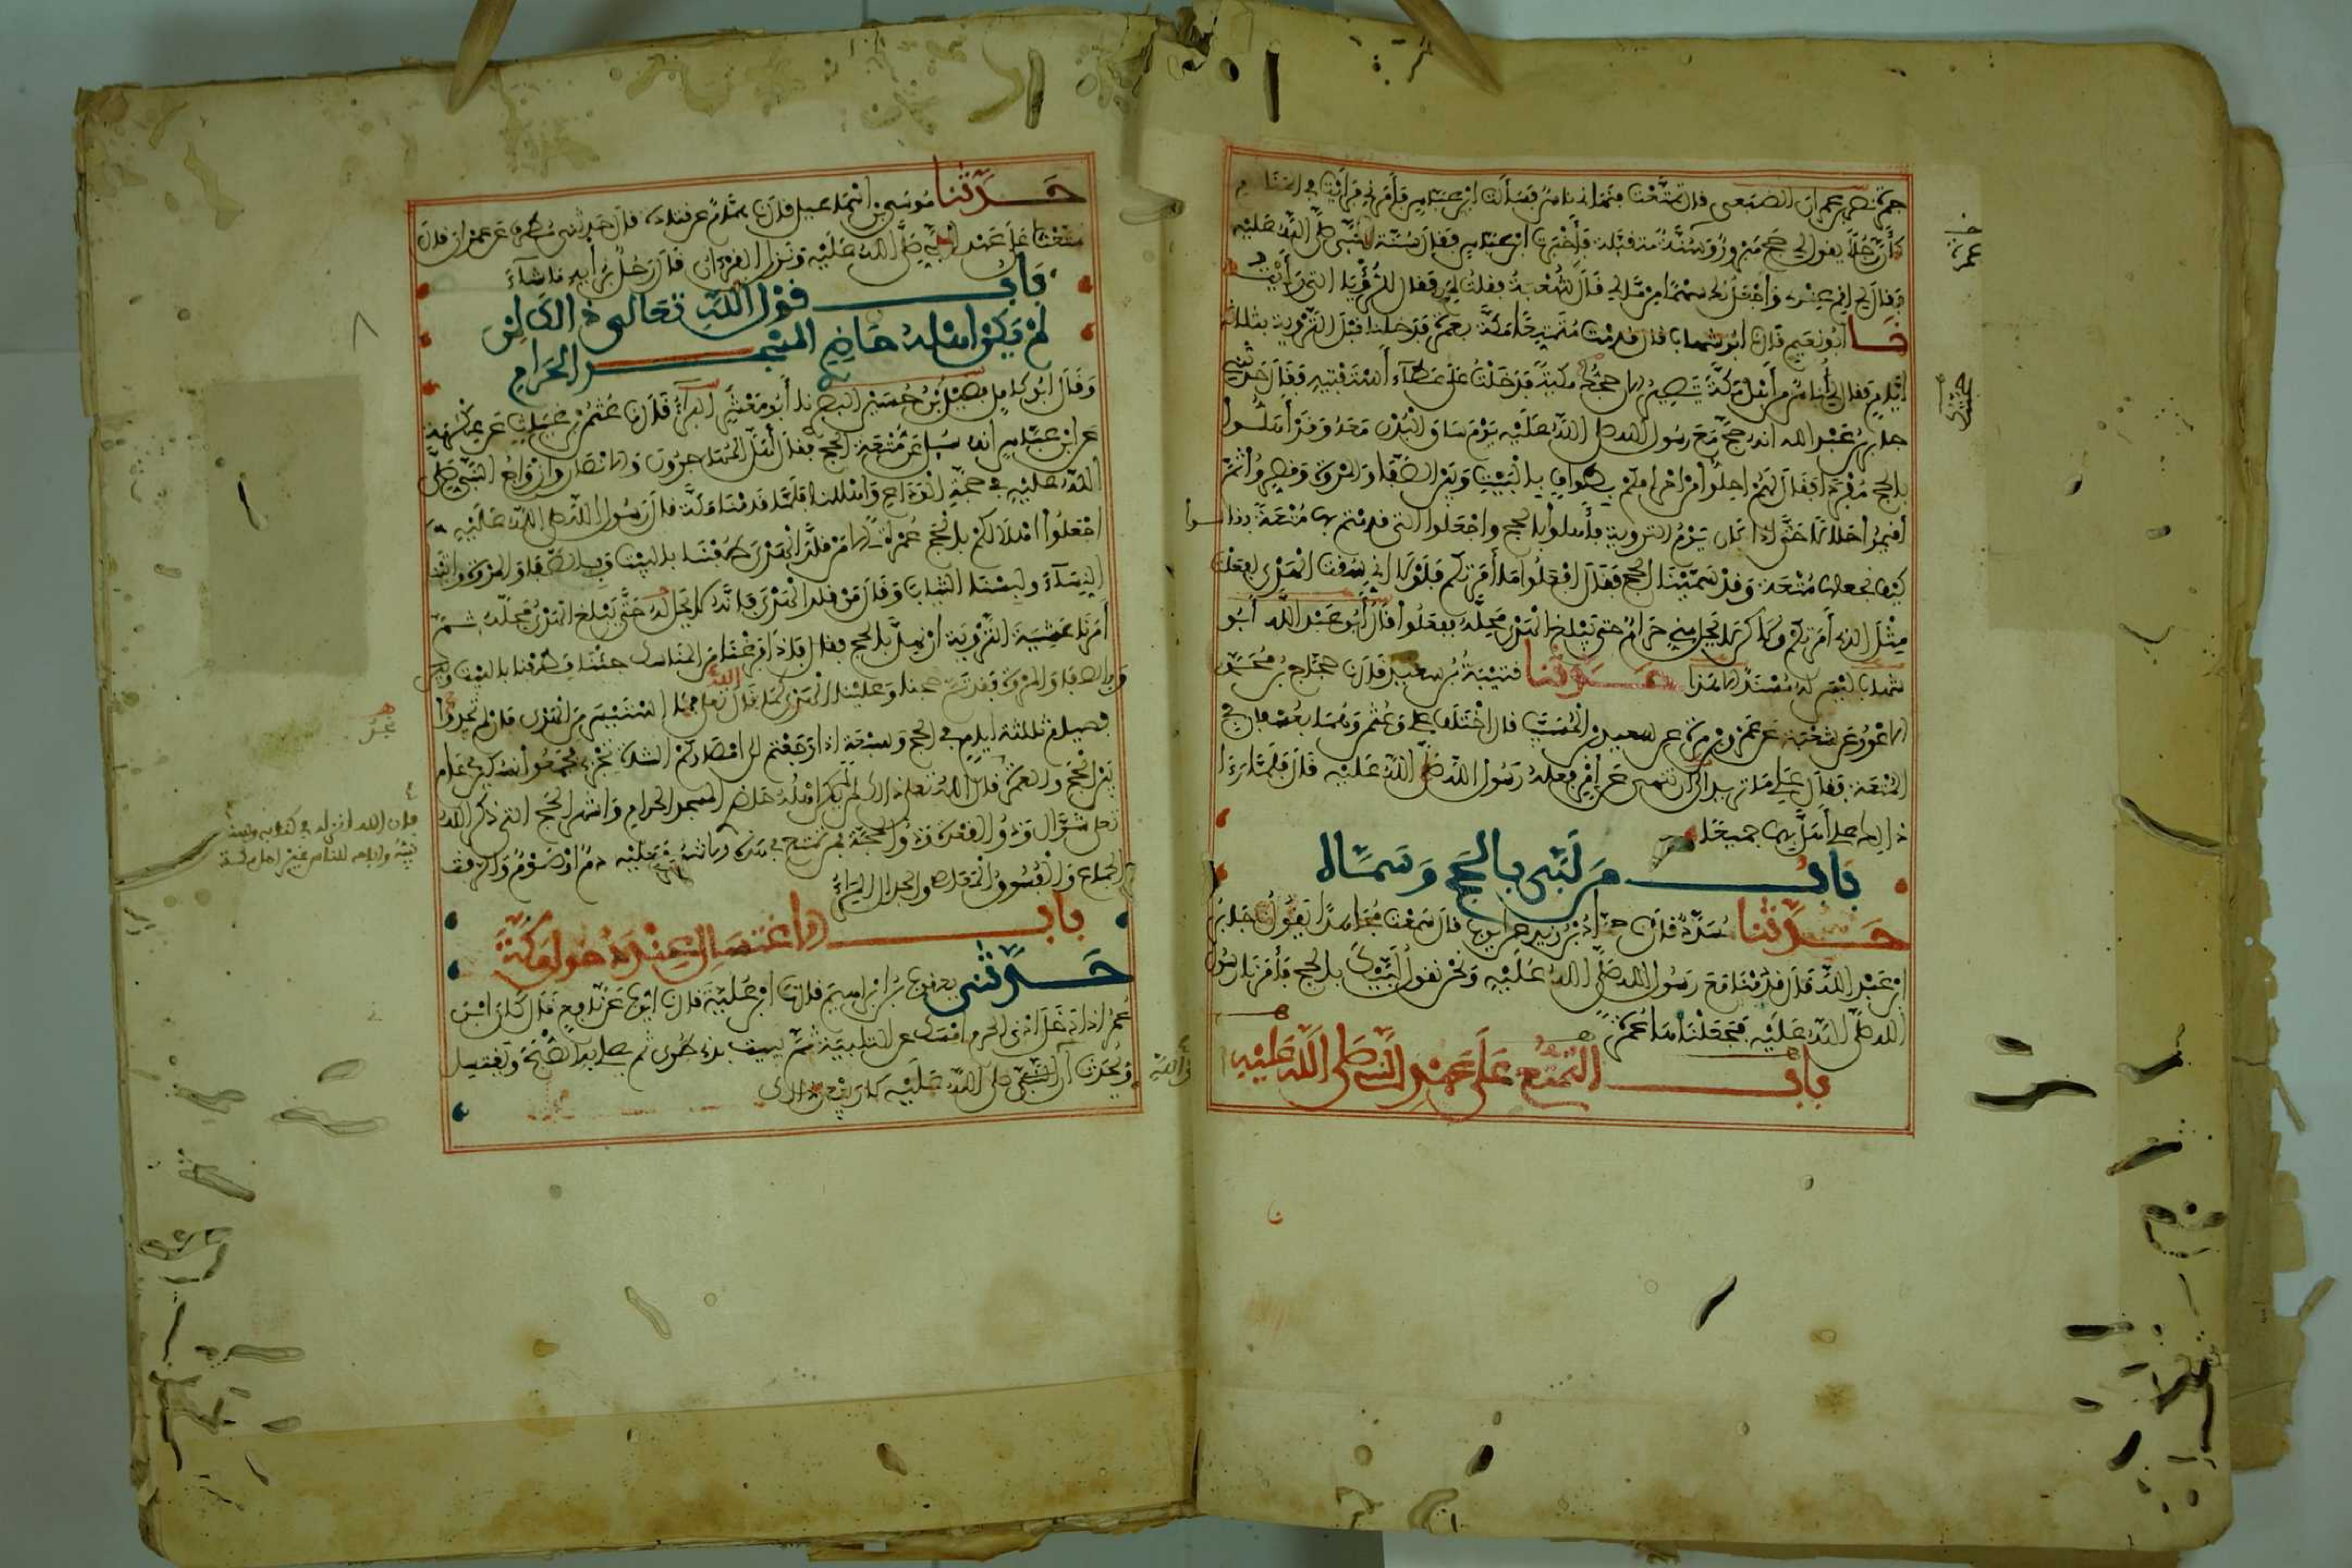 جمرة نصر بن عمران الضبعي قال تمتعت فنهاني ناس فسألت ابن عباس فأمرني فرأيت في المنام
كأن رجلا يقول لي حج مبرور وسنة متقبلة فأخبرت ابن عباس فقال سنة النبي صلى الله عليه
فقال لي اقم عندي واجعل لك سهما من مالي قال شعبة فقلت لم فقال للرؤيا التي رأيت
نا ابو نعيم قال نا ابو شهاب قال قدمت متمتعا مكة بعمرة فدخلنا قبل التروية بثلاثة
ايام فقال لي أناس من أهل مكة تصير الان حجتك مكية فدخلت على عطاء أستفتيه فقال حدثني
جابر بن عبد الله انه حج مع رسول الله صلى الله عليه يوم ساق البدن معه وقد أهلوا
بالحج مفردا فقال لهم احلوا من احرامكم بطواف بالبيت وبين الصفا والمروة وقصروا ثم
أقيموا حلالا حتى اذا كان يوم التروية فأهلوا بالحج واجعلوا التي قدمتم بها متعة فقالوا
كيف نجعلها متعة وقد سمينا الحج فقال افعلوا ما أمرتكم فلولا اني سقت الهدي لفعلت
مثل الذي أمرتكم ولاكن لا يحل مني حرام حتى يبلغ الهدي محله ففعلوا قال أبو عبد الله أبو
شهاب ليس له مسند الا هذا حدثنا قتيبة بن سعيد قال نا حجاج بن محمد
الاعور عن شعبة عن عمرو بن مرة عن سعيد بن المسيب قال اختلف علي وعثمن وهما بعسفان في
المتعة فقال علي ما تريد الى ان تنهى عن أمر فعله رسول الله صلى الله عليه قال فلما رءا
ذالك علي أهل بهما جميعا
باب من لبى بالحج وسماه
حدثنا مسدد قال نا حماد بن زيد عن ايوب قال سمعت مجاهدا يقول نا جابر بن
ابن عبد الله قال قدمنا مع رسول الله صلى الله عليه ونحن نقول لبيك بالحج فأمرنا رسول
الله صلى الله عليه فجعلناها عمرة
باب التمتع على عهد النبي صلى الله عليه
حدثنا موسى بن اسماعيل قال نا همام عن قتادة قال حدثني مطرف عن عمران قال
تمتعنا على عهد النبي صلى الله عليه ونزل القرءان قال رجل برأيه ما شاء
باب قول الله تعالى ذالك لمن
لم يكن اهله حاضري المسجد الحرام
وقال ابو كامل فضيل بن حسين البصري نا أبو معشر البراء قال نا عثمن بن غياث عن عكرمة
عن ابن عباس انه سيل عن متعة الحج فقال أهل المهاجرون والانصار وازواج النبي صلى
الله عليه في حجة الوداع وأهللنا فلما قدمنا مكة قال رسول الله صلى الله عليه
اجعلوا اهلالكم بالحج عمرة الا من قلد الهدي طفنا بالبيت وبالصفا والمروة واتينا
النساء ولبسنا الثياب وقال من قلد الهدي فانه لا يحل له حتى يبلغ الهدي محله ثم
أمرنا عشية التروية ان نهل بالحج فقال فاذا فرغنا من المناسك جئنا فطفنا بالبيت
وبالصفا والمروة فقد تم حجنا وعلينا الهدي كما قال الله فما استيسر من الهدي فمن لم يجد
فصيام ثلثة ايام في الحج وسبعة اذا رجعتم الى امصاركم الشاة تجزي فجمعوا نسكين في عام
بين الحج والعمرة قال الله تعلى ذالك لمن لم يكن اهله حاضري المسجد الحرام واشهر الحج التي ذكر الله
تعلى شوال وذو القعدة وذو الحجة فمن تمتع في هذه الاشهر فعليه دم او صوم والرفث
الجماع والفسوق المعاصي والجدال المراء
فان الله انزله في كتابه وسنة
نبيه واباحه للناس غير اهل مكة
باب الاغتسال عند دخول مكة
حدثني يعقوب بن ابراهيم قال نا ابن علية قال نا ايوب عن نافع قال كان ابن
عمر اذا دخل ادنى الحرم امسك عن التلبية ثم يبيت بذي طوى ثم يصلي به الصبح ويغتسل
ويحدث أن النبي صلى الله عليه كان يفعل ذالك